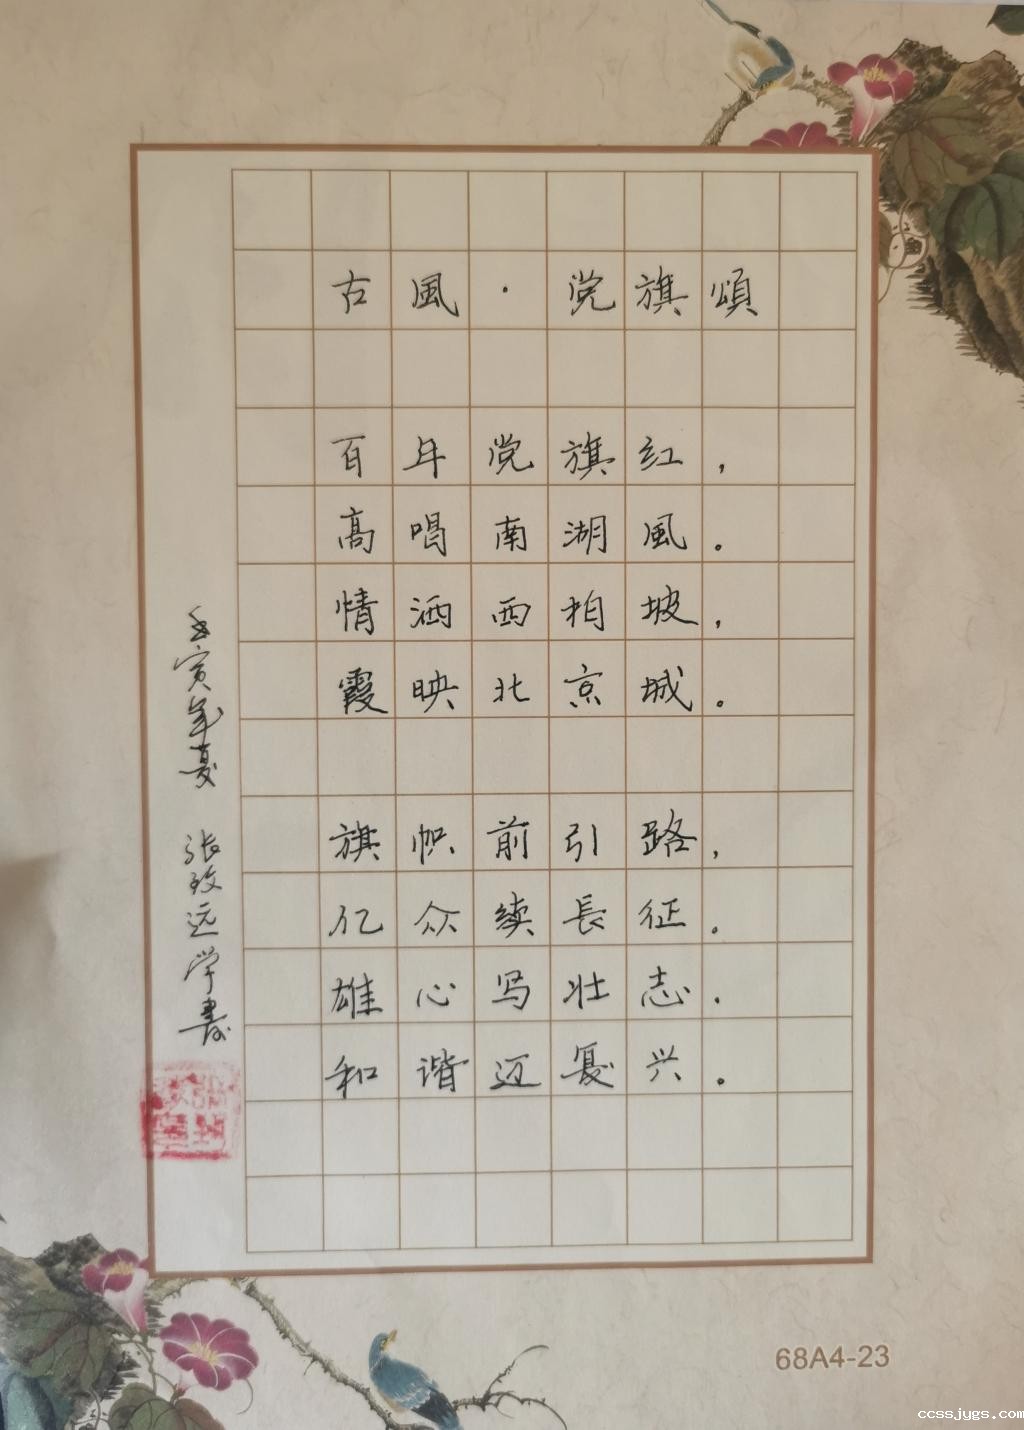 古風·党旗頌
百年党旗红，
高唱南湖風。
情洒西柏坡，
霞映北京城。
旗帜前引路，
亿众续長征。
雄心写壮志.
和谐迈复兴。
壬寅年夏 张致远学書
68A4-23
ccssjygs.com